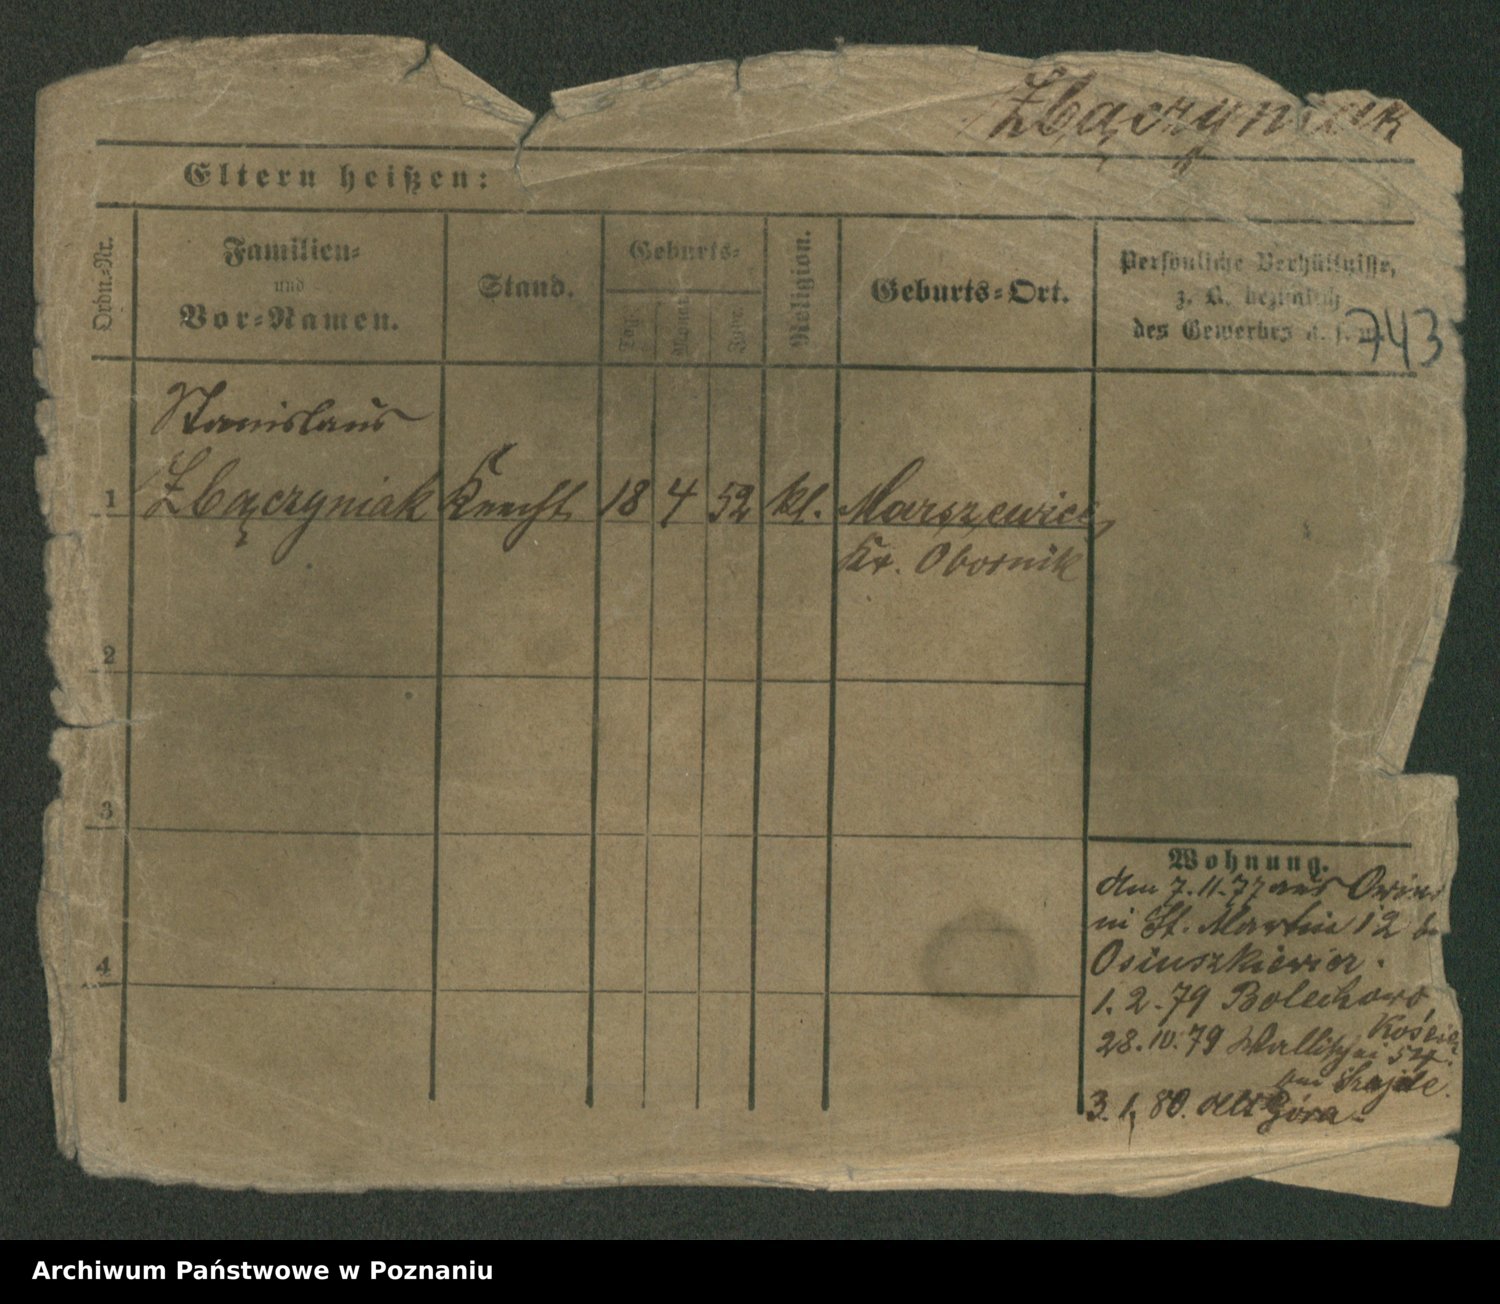 Zbączyniak
Eltern heißen:
Ordn.-Nr.
Familien-
und
Vor-Namen.
Stand.
Geburts-
Tag.
Monat.
Jahr.
Religion.
Geburts-Ort.
Persönliche Verhältnisse,
z. B. bezüglich
des Gewerbes u. s. w.
743
Stanislaus
1 Zbączyniak Knecht 18 4 52 kt. Marszewice
Kr. Obornik
2
3
4
Wohnung.
Am 7.11.77 aus
in St. Martin 12
Osiuszkiewicz.
1.2.79 Bolechowo
28.10.79 Wallischei 54.
3.1.80. Góra
Archiwum Państwowe w Poznaniu